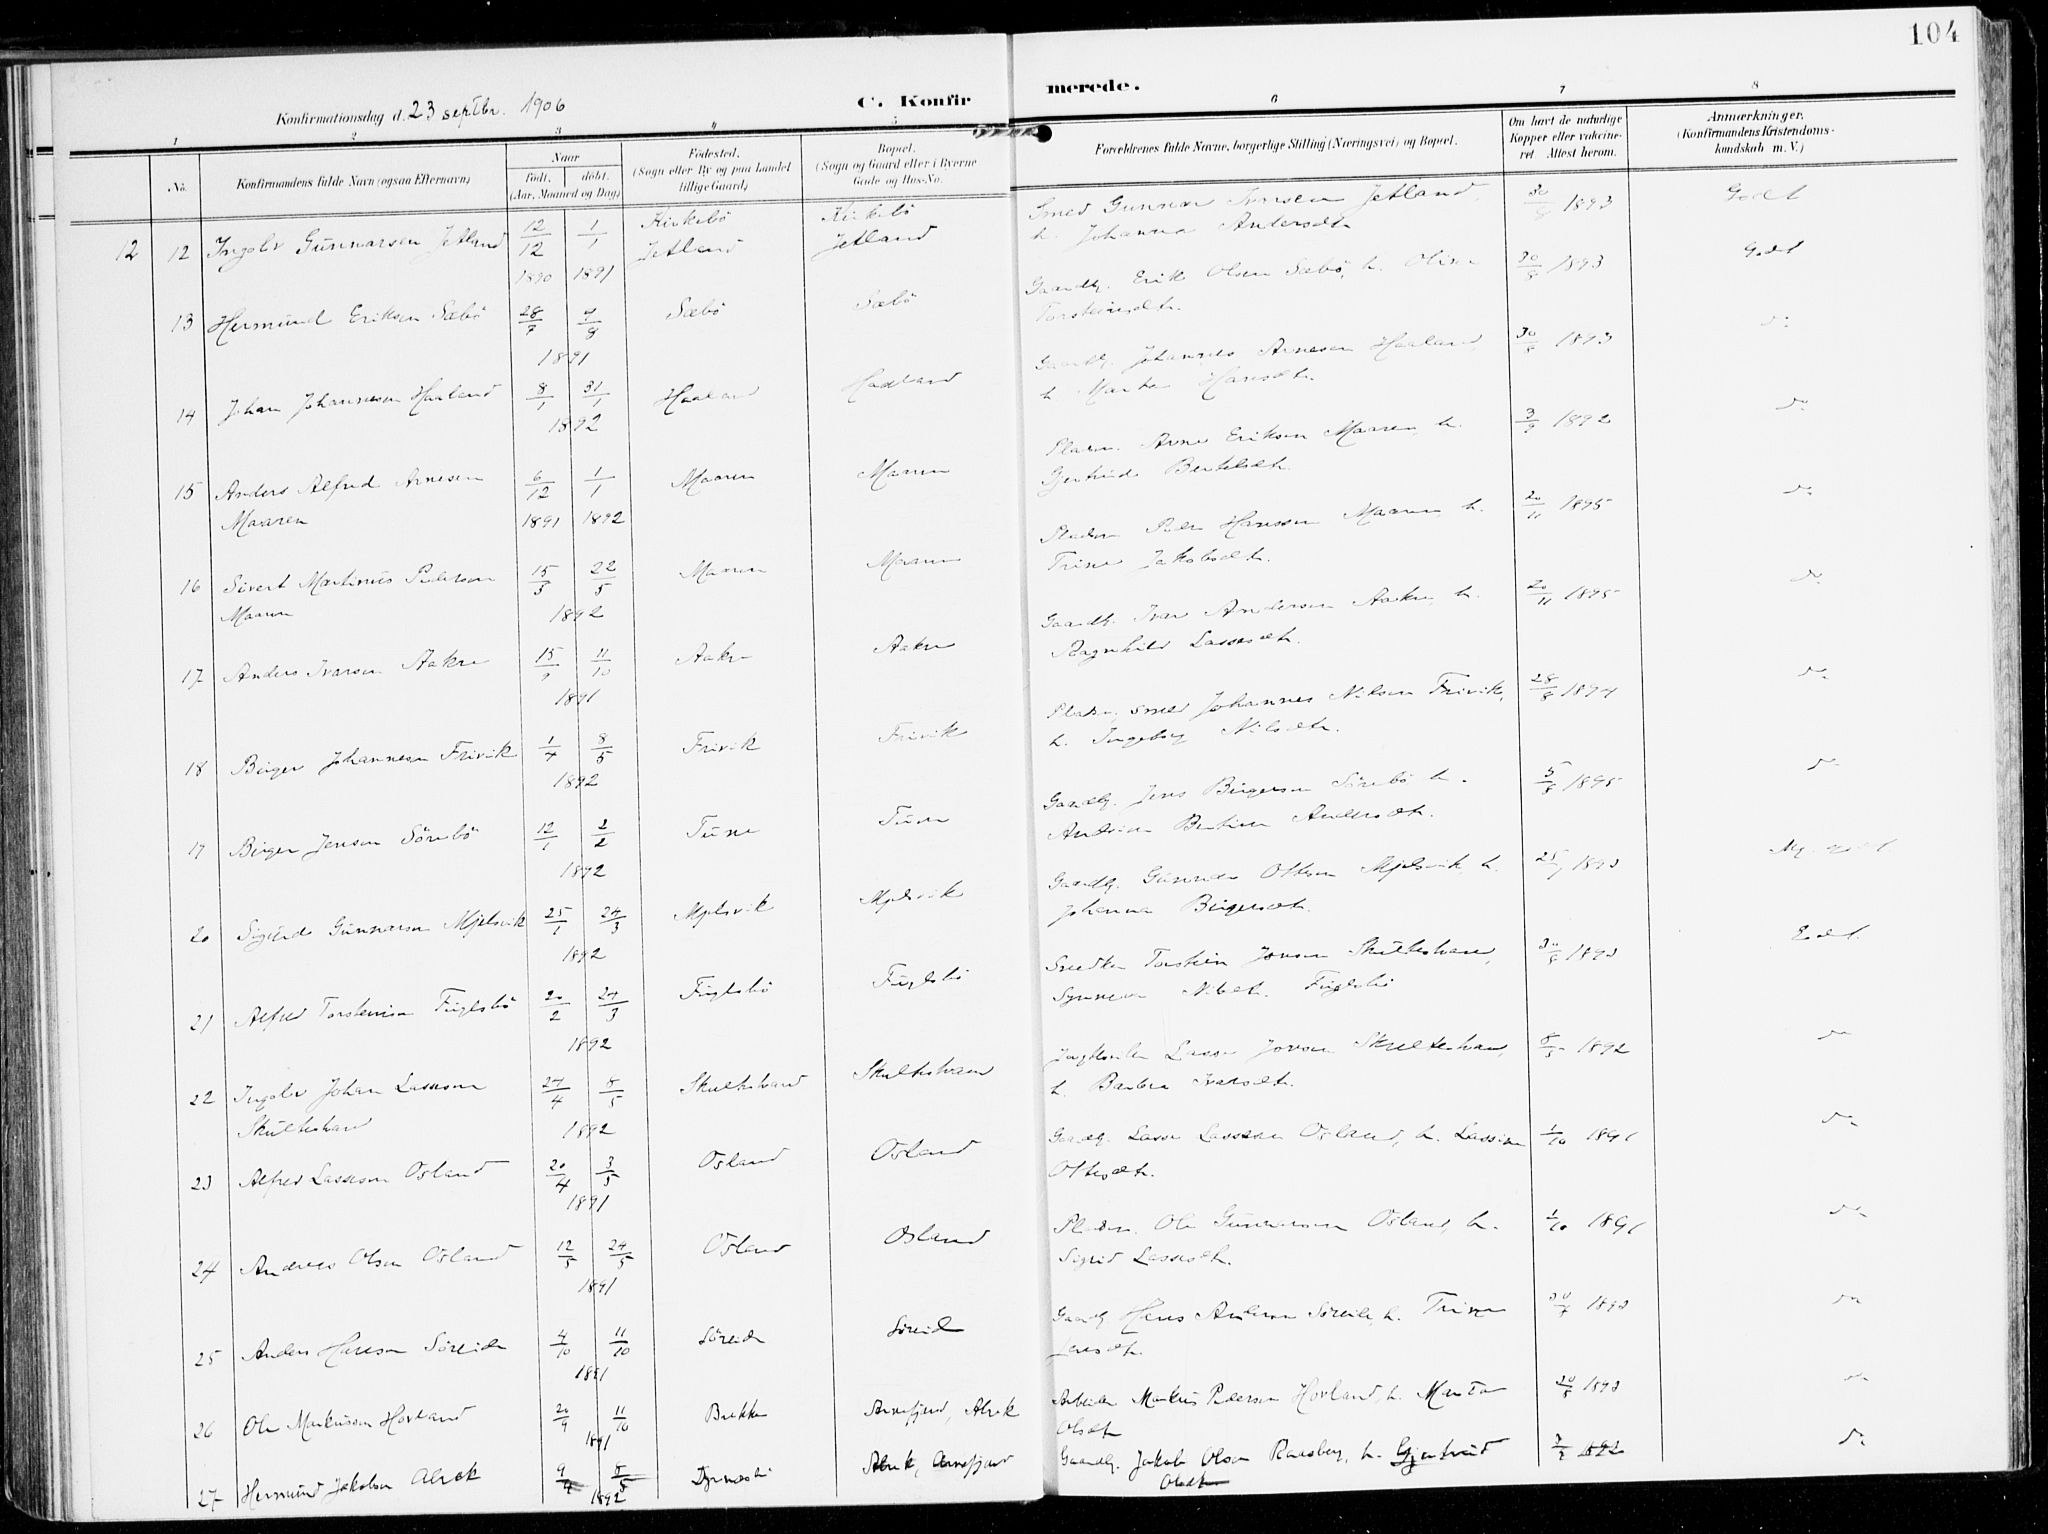 104
Konfirmationsdag d. 23 septbr. 1906
C. Konfirmerede.
1 2 3 4 5 6 7 8
No.
Konfirmandens fulde Navn (ogsaa Efternavn)
Naar
født. døbt.
(Aar, Maaned og Dag)
Fødested.
(Sogn eller By og paa Landet tillige Gaard)
Bopæl.
(Sogn og Gaard eller i Byerne Gade og Hus-No.
Forældrenes fulde Navne, borgerlige Stilling (Næringsvei) og Bopæl.
Om havt de naturlige Kopper eller vakcineret. Attest herom.
Anmærkninger.
(Konfirmandens Kristendomskundskab m. V.)
12 12 Ingolv Gunnarsen Jetland 12/12 1890 1/1 1891 Kirkebö Jetland Kirkebö Jetland Smed Gunnar Ivarsen Jetland, h. Johanna Andersdt. 30/8 1893 Godt
13 Hermund Eriksen Sæbö 28/7 7/8 1891 Sæbö Sæbö Gaardbr. Erik Olsen Sæbö, h. Olina Torsteinsdt. 30/8 1893 Godt
14 Johan Johannesen Haaland 8/1 31/1 1892 Haaland Haaland Gaardbr. Johannes Arnesen Haaland, h. Marta Hansdt. 30/8 1893 do
15 Anders Alfred Arnesen Maaren 6/12 1891 1/1 1892 Maaren Maaren Pladsm. Arne Eriksen Maaren, h. Gjertrud Bertelsdt. 3/9 1892 do
16 Sivert Martinus Pedersen Maaren 15/3 22/5 1892 Maaren Maaren Pladsm Peder Hanssen Maaren h. Trine Jakobsdt. 20/11 1895 do
17 Anders Ivarsen Aakre 15/9 11/10 1891 Aakre Aakre Gaardbr. Ivar Andersen Aakre, h. Ragnhild Lassesdt. 20/11 1895 do
18 Birger Johannesen Frivik 1/4 8/5 1892 Frivik Frivik Pladsm, smed Johannes Nilsen Frivik, h. Ingeborg Nilsdt. 28/8 1894 do
19 Birger Jensen Sörebö 12/1 2/2 1892 Tune Tune Gaardbr. Jens Birgersen Sörebö h. Andrina Bertina Andersdt. 5/8 1895 do
20 Sigurd Gunnarsen Mjelsvik 25/1 24/3 1892 Mjelsvik Mjelsvik Gaardbr. Gunnar Ottesen Mjelsvik, h. Johanna Birgersdt. 1893 Mg. godt
21 Alfred Torsteinsen Fuglebö 20/2 24/3 1892 Fuglebö Fuglebö Snedker Torstein Jonsen Skultestrand, Synneva Nilsdt. Fuglebö 30/8 1893 Godt.
22 Ingolv Johan Lassesen Skultestrand 24/4 8/5 1892 Skultestrand Skultestrand Lasse Jonsen Skultestrand, h. Barbra Ivarsdt. 8/8 1892 do
23 Alfred Lassesen Osland 20/4 3/5 1891 Osland Osland Gaardbr. Lasse Lassesen Osland, h. Lassine Ottesdt. 1/10 1891 do
24 Andreas Olsen Osland 12/5 24/5 1891 Osland Osland Pladsm. Ole Gunnarsen Osland, h. Sigrid Lassesdt. 1/10 1891 do
25 Anders Hansen Söreide 4/10 11/10 1891 Söreide Söreid Gaardbr. Hans Andersen Söreide, h. Trine Jensdt. 1893 do
26 Ole Markussen Hovland 20/9 11/10 1891 Brekke Arnefjord, Alrek Arbeider Markus Pedersen Hovland, h. Marta Olsdt 30/8 1893 do
27 Hermund Jakobsen Alrek 9/4 8/5 1892 Alrek, Arnefjord Gaardbr. Jakob Olsen Raasberg, h. Gjertrud Olsdt 1892 do